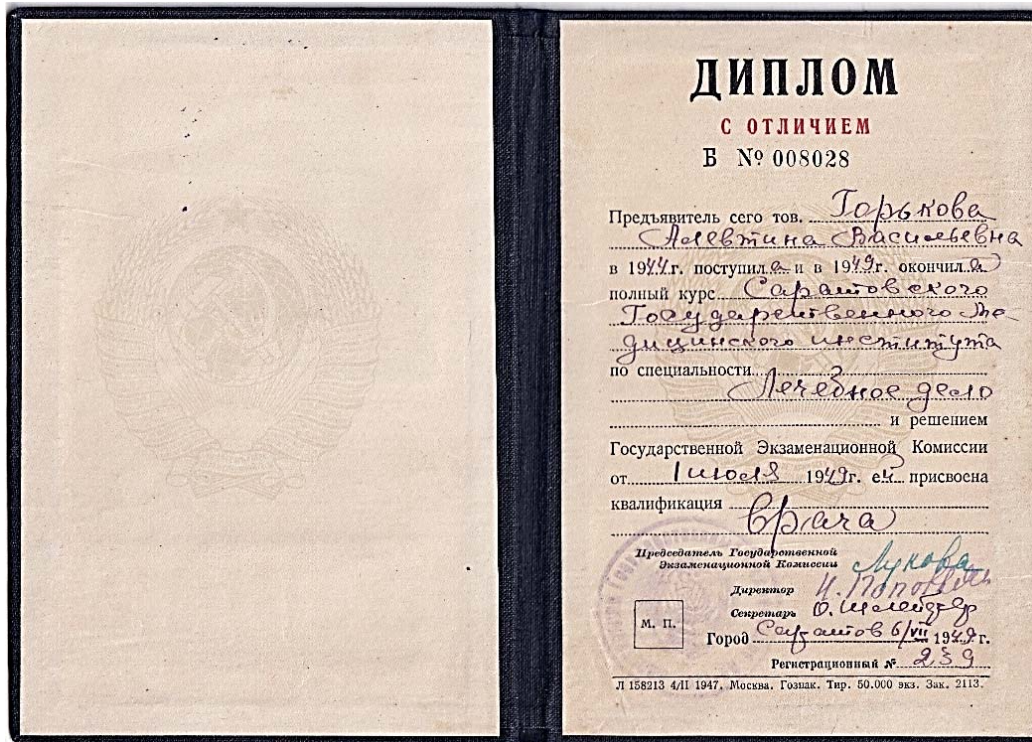 ДИПЛОМ
С ОТЛИЧИЕМ
Б № 008028
Предъявитель сего тов. Горькова
Алевтина Васильевна
в 1944 г. поступила и в 1949 г. окончила
полный курс Саратовского
Государственного Ме-
дицинского института
по специальности
Лечебное дело
и решением
Государственной Экзаменационной Комиссии
от 1 июля 1949 г. ей присвоена
квалификация врача
Председатель Государственной
Экзаменационной Комиссии
Директор
Секретарь
М. П.
Город Саратов 6/VII 1949 г.
Регистрационный № 239
Л 158213 4/II 1947. Москва. Гознак. Тир. 50.000 экз. Зак. 2113.